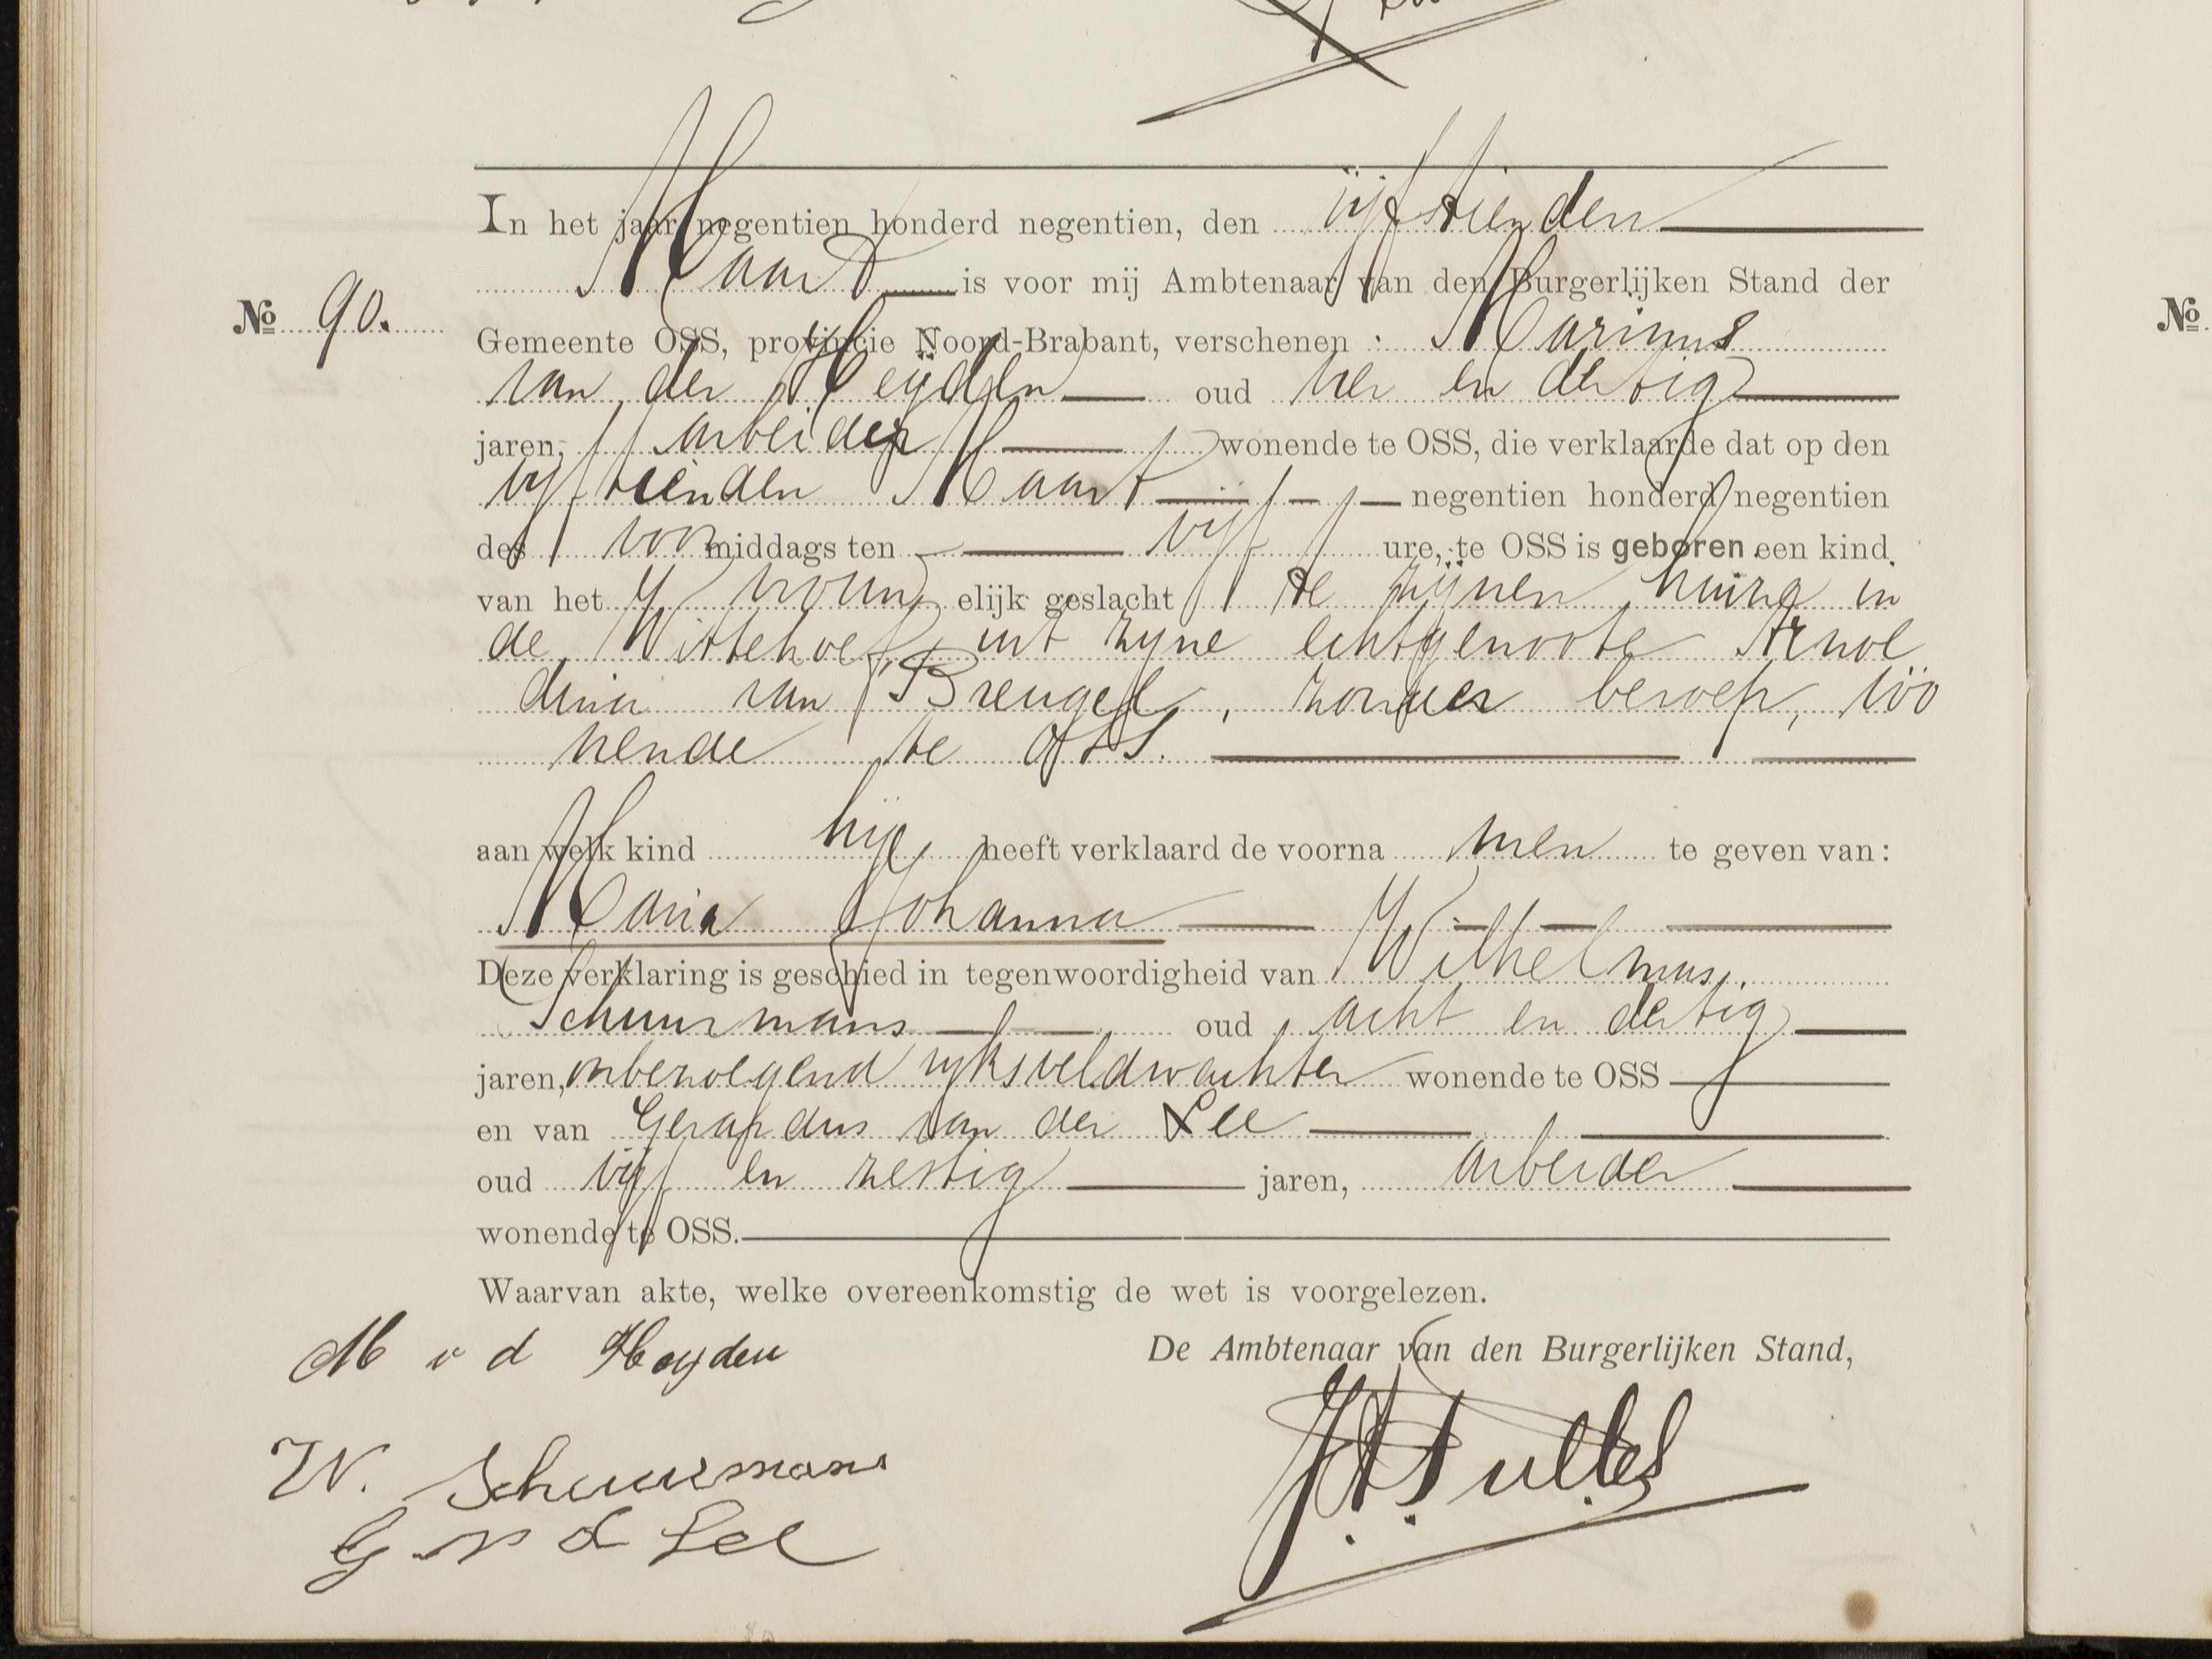 In het jaar negentien honderd negentien, den vijftienden
Maart is voor mij Ambtenaar van den Burgerlijken Stand der
No 90.
Gemeente OSS, provincie Noord-Brabant, verschenen : Marinus
van der Heijden oud vier en dertig
jaren, arbeider wonende te OSS, die verklaarde dat op den
vijftienden Maart negentien honderd negentien
des voormiddags ten vijf ure, te OSS is geboren een kind
van het vrouwelijk geslacht te zijnen huize in
de Wittehoef, uit zijne echtgenoote Arnol
dina van Breugel, zonder beroep, wo
nende te OSS.
aan welk kind hij heeft verklaard de voorna men te geven van:
Maria Johanna
Deze verklaring is geschied in tegenwoordigheid van Wilhelmus
Schuurmans oud acht en dertig
jaren, onbezoldigd rijksveldwachter wonende te OSS
en van Gerardus van der Lee
oud vijf en zestig jaren, arbeider
wonende te OSS.
Waarvan akte, welke overeenkomstig de wet is voorgelezen.
M v d Heyden
De Ambtenaar van den Burgerlijken Stand,
W. Schuurmans
G v d Lee
No